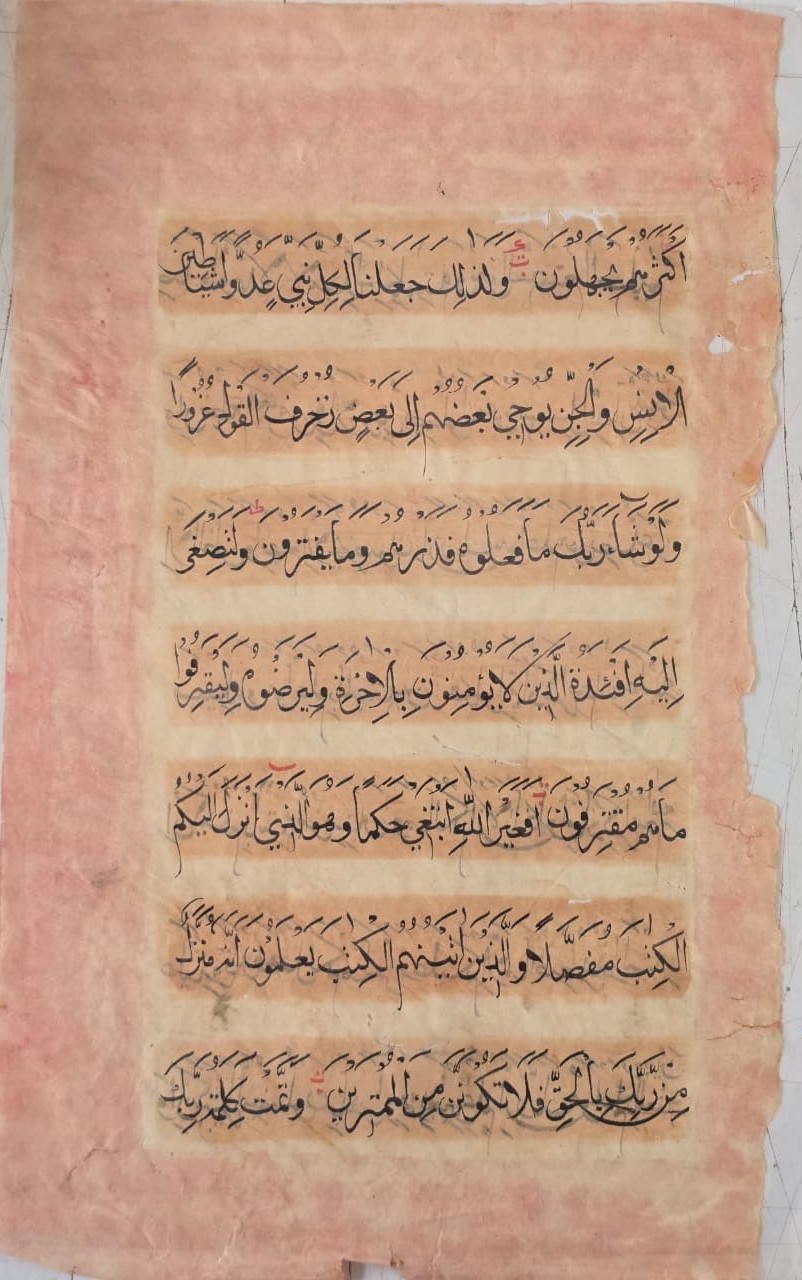 اَكْثَرَهُمْ يَجْهَلُونَ وَلَذٰلِكَ جَعَلْنَا لِكُلِّ نَبِيٍّ عَدُوًّا شَيَاطِينَ
الْاِنْسِ وَالْجِنِّ يُوحِي بَعْضُهُمْ اِلٰى بَعْضٍ زُخْرُفَ الْقَوْلِ غُرُورًا
وَلَوْ شَآءَ رَبُّكَ مَا فَعَلُوهُ فَذَرْهُمْ وَمَا يَفْتَرُونَ وَلِتَصْغٰى
اِلَيْهِ اَفْئِدَةُ الَّذِينَ لَا يُؤْمِنُونَ بِالْاٰخِرَةِ وَلِيَرْضَوْهُ وَلِيَقْتَرِفُوا
مَا هُمْ مُقْتَرِفُونَ اَفَغَيْرَ اللّٰهِ اَبْتَغِي حَكَمًا وَهُوَ الَّذِي اَنْزَلَ اِلَيْكُمُ
الْكِتٰبَ مُفَصَّلًا وَالَّذِينَ اٰتَيْنٰهُمُ الْكِتٰبَ يَعْلَمُونَ اَنَّهُ مُنَزَّلٌ
مِنْ رَبِّكَ بِالْحَقِّ فَلَا تَكُونَنَّ مِنَ الْمُمْتَرِينَ وَتَمَّتْ كَلِمَةُ رَبِّكَ